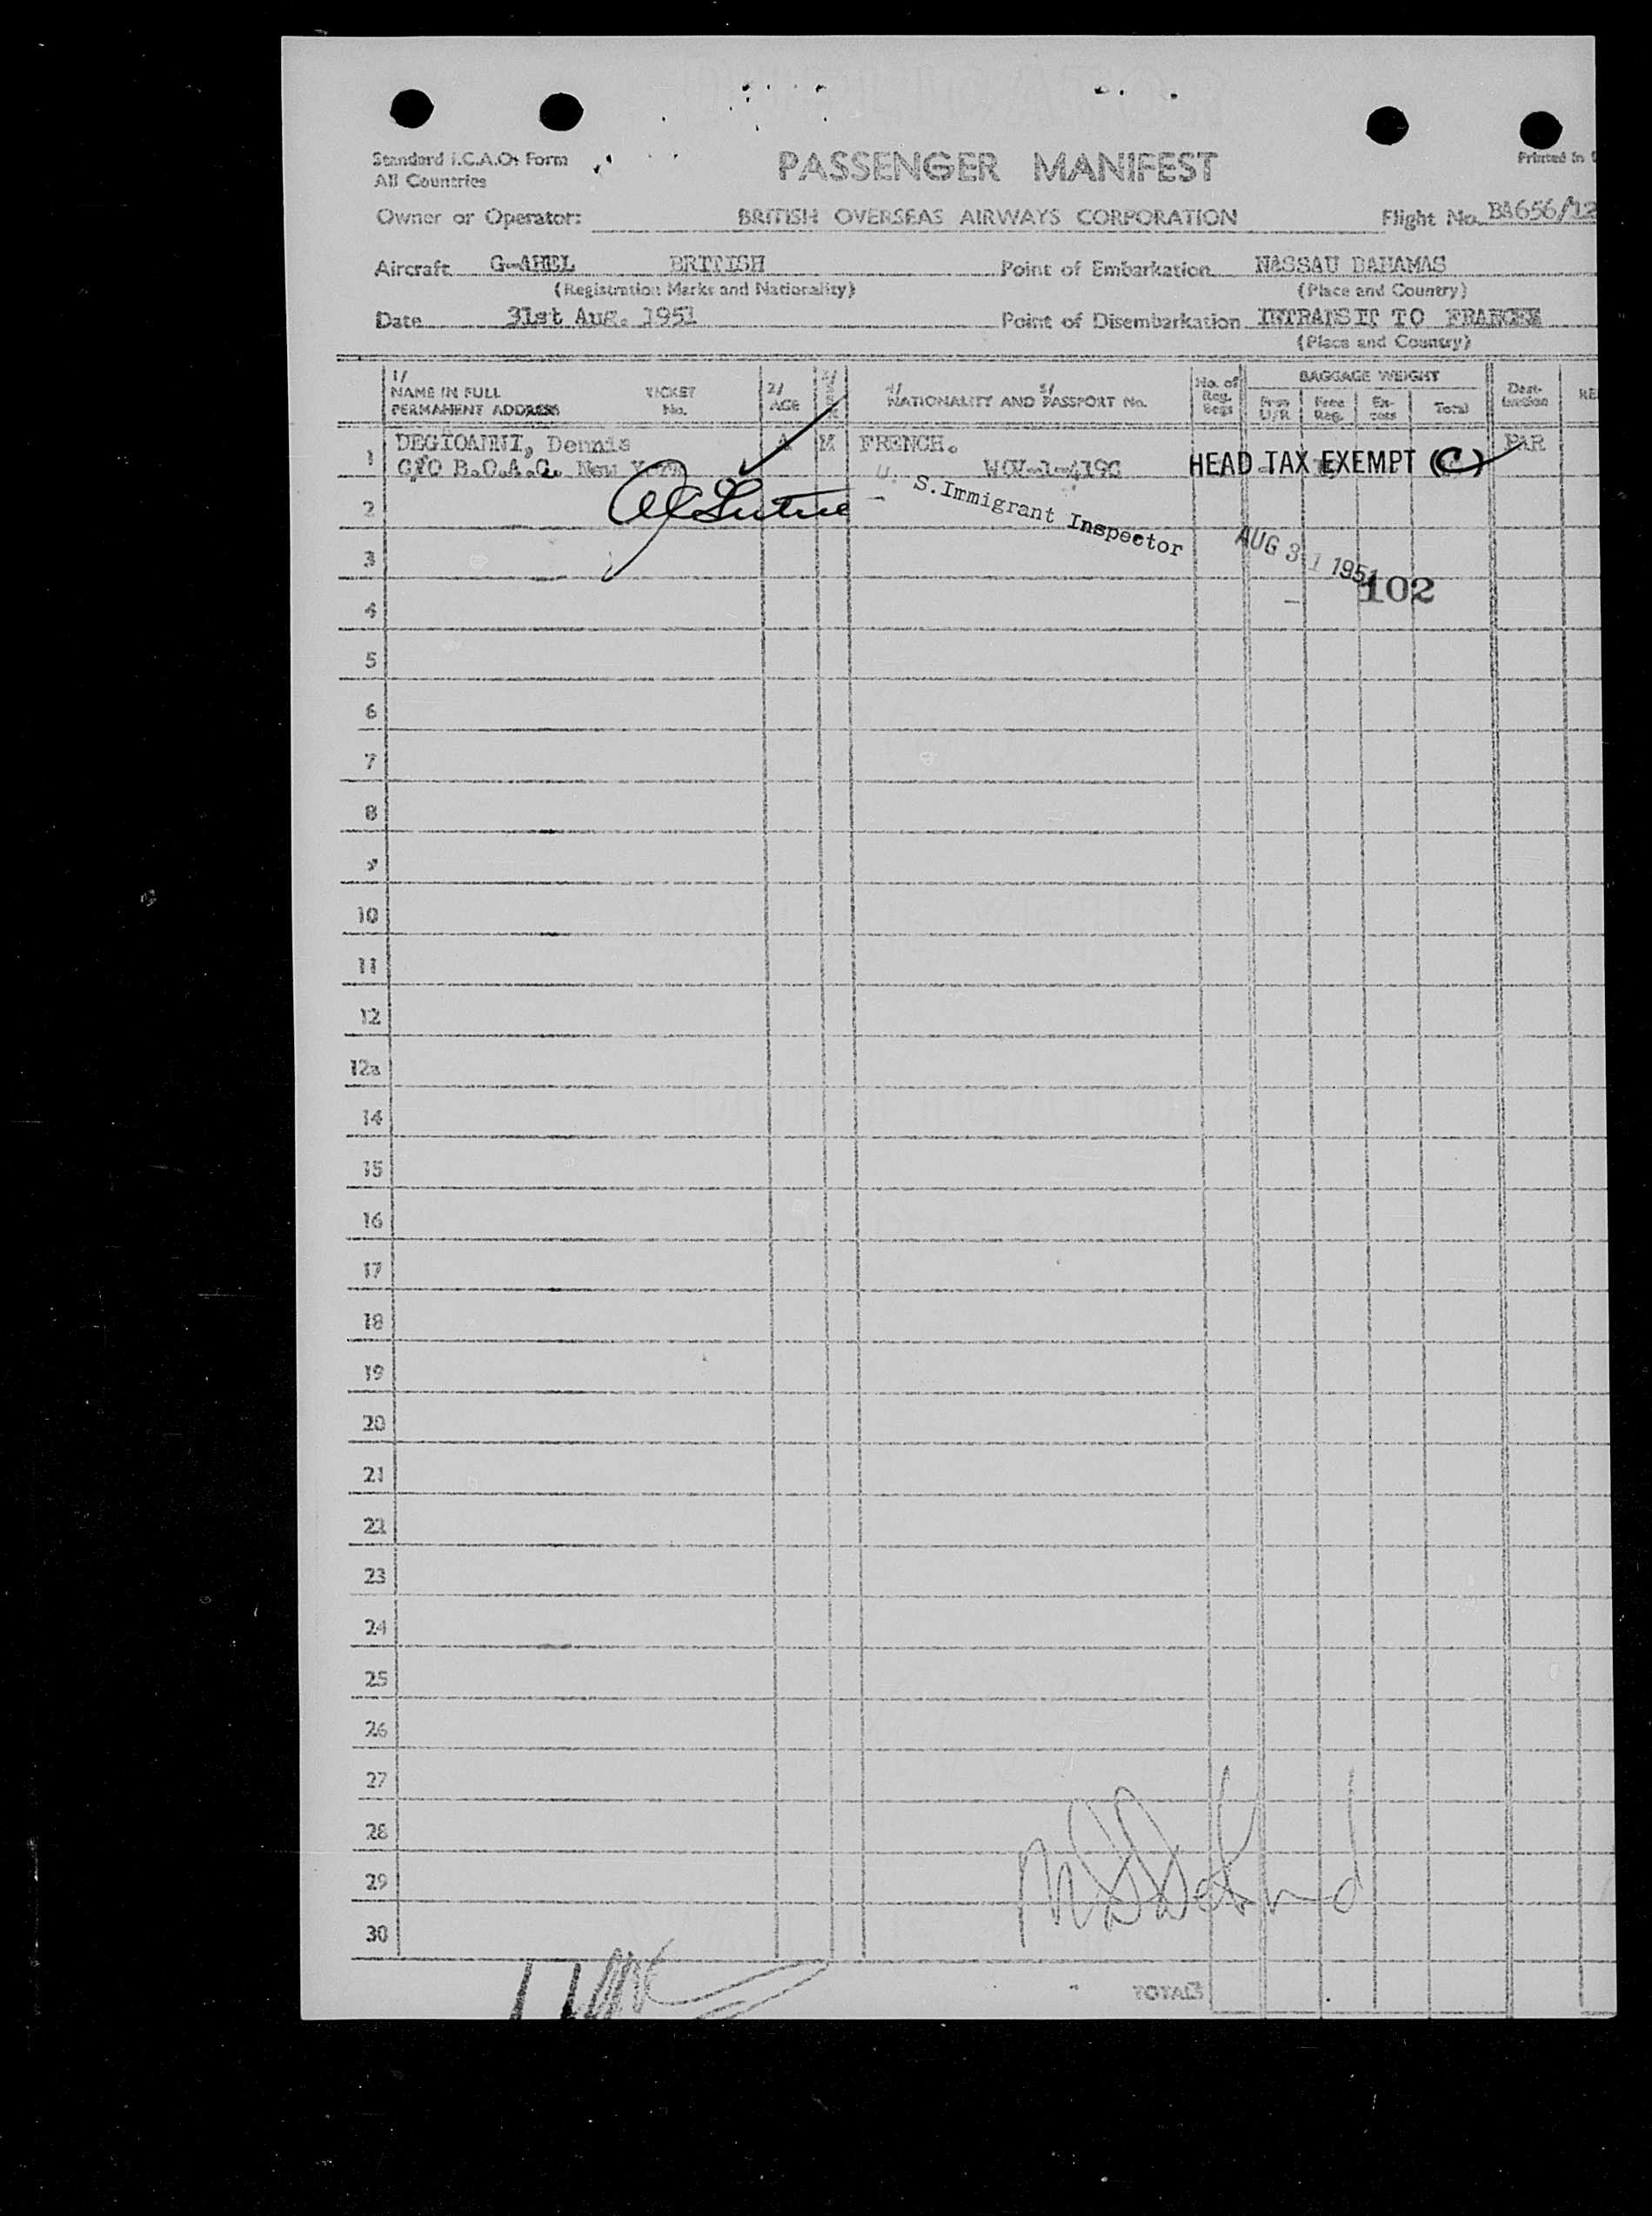 Standard I.C.A.O. Form
All Countries
PASSENGER MANIFEST
Printed in
Owner or Operator: BRITISH OVERSEAS AIRWAYS CORPORATION Flight No. BA656/12
Aircraft G-AHEL BRITISH Point of Embarkation NASSAU BAHAMAS
(Registration Marks and Nationality) (Place and Country)
Date 31st Aug. 1951 Point of Disembarkation INTRANSIT TO FRANCE
(Place and Country)
1/ NAME IN FULL PERMANENT ADDRESS TICKET No. 2/ AGE 3/ 4/ NATIONALITY AND 5/ PASSPORT No. No. of Reg. Bags BAGGAGE WEIGHT Free U/R Free Reg. Ex-cess Total Dest-ination RE
1 DEGIOANNI, Dennis A M FRENCH. PAR
C/O B.O.A.C. New York HEAD TAX EXEMPT (C)
U. S. Immigrant Inspector
AUG 31 1951
102
2
3
4
5
6
7
8
9
10
11
12
12a
14
15
16
17
18
19
20
21
22
23
24
25
26
27
28
29
30
TOTALS